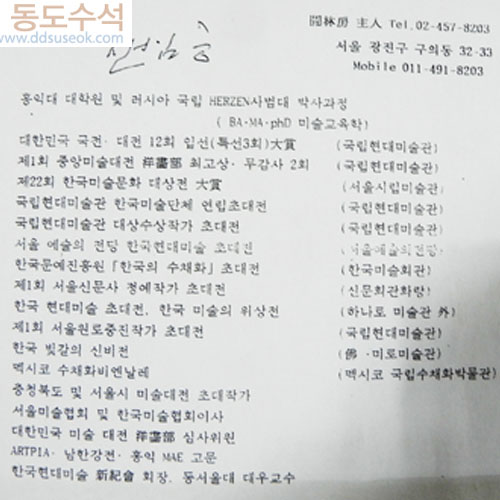 동도수석
www.ddsuseok.com
圓林房 主人 Tel.02-457-8203
서울 광진구 구의동 32-33
Mobile 011-491-8203
홍익대 대학원 및 러시아 국립 HERZEN사범대 박사과정
( BA·MA·phD 미술교육학)
대한민국 국전·대전 12회 입선(특선3회)大賞 (국립현대미술관)
제1회 중앙미술대전 洋畵部 최고상· 무감사 2회 (국립현대미술관)
제22회 한국미술문화 대상전 大賞 (서울시립미술관)
국립현대미술관 한국미술단체 연립초대전 (국립현대미술관)
국립현대미술관 대상수상작가 초대전 (국립현대미술관)
서울 예술의 전당 한국현대미술 초대전 (서울예술의전당)
한국문예진흥원「한국의 수채화」초대전 (한국미술회관)
제1회 서울신문사 정예작가 초대전 (신문회관화랑)
한국 현대미술 초대전, 한국 미술의 위상전 (하나로 미술관 外)
제1회 서울원로중진작가 초대전 (국립현대미술관)
한국 빛깔의 신비전 (佛 ·미로미술관)
멕시코 수채화비엔날레 (멕시코 국립수채화박물관)
충청북도 및 서울시 미술대전 초대작가
서울미술협회 및 한국미술협회이사
대한민국 미술 대전 洋畵部 심사위원
ARTPIA· 남한강전· 홍익 MAE 고문
한국현대미술 新紀會 회장, 동서울대 대우교수